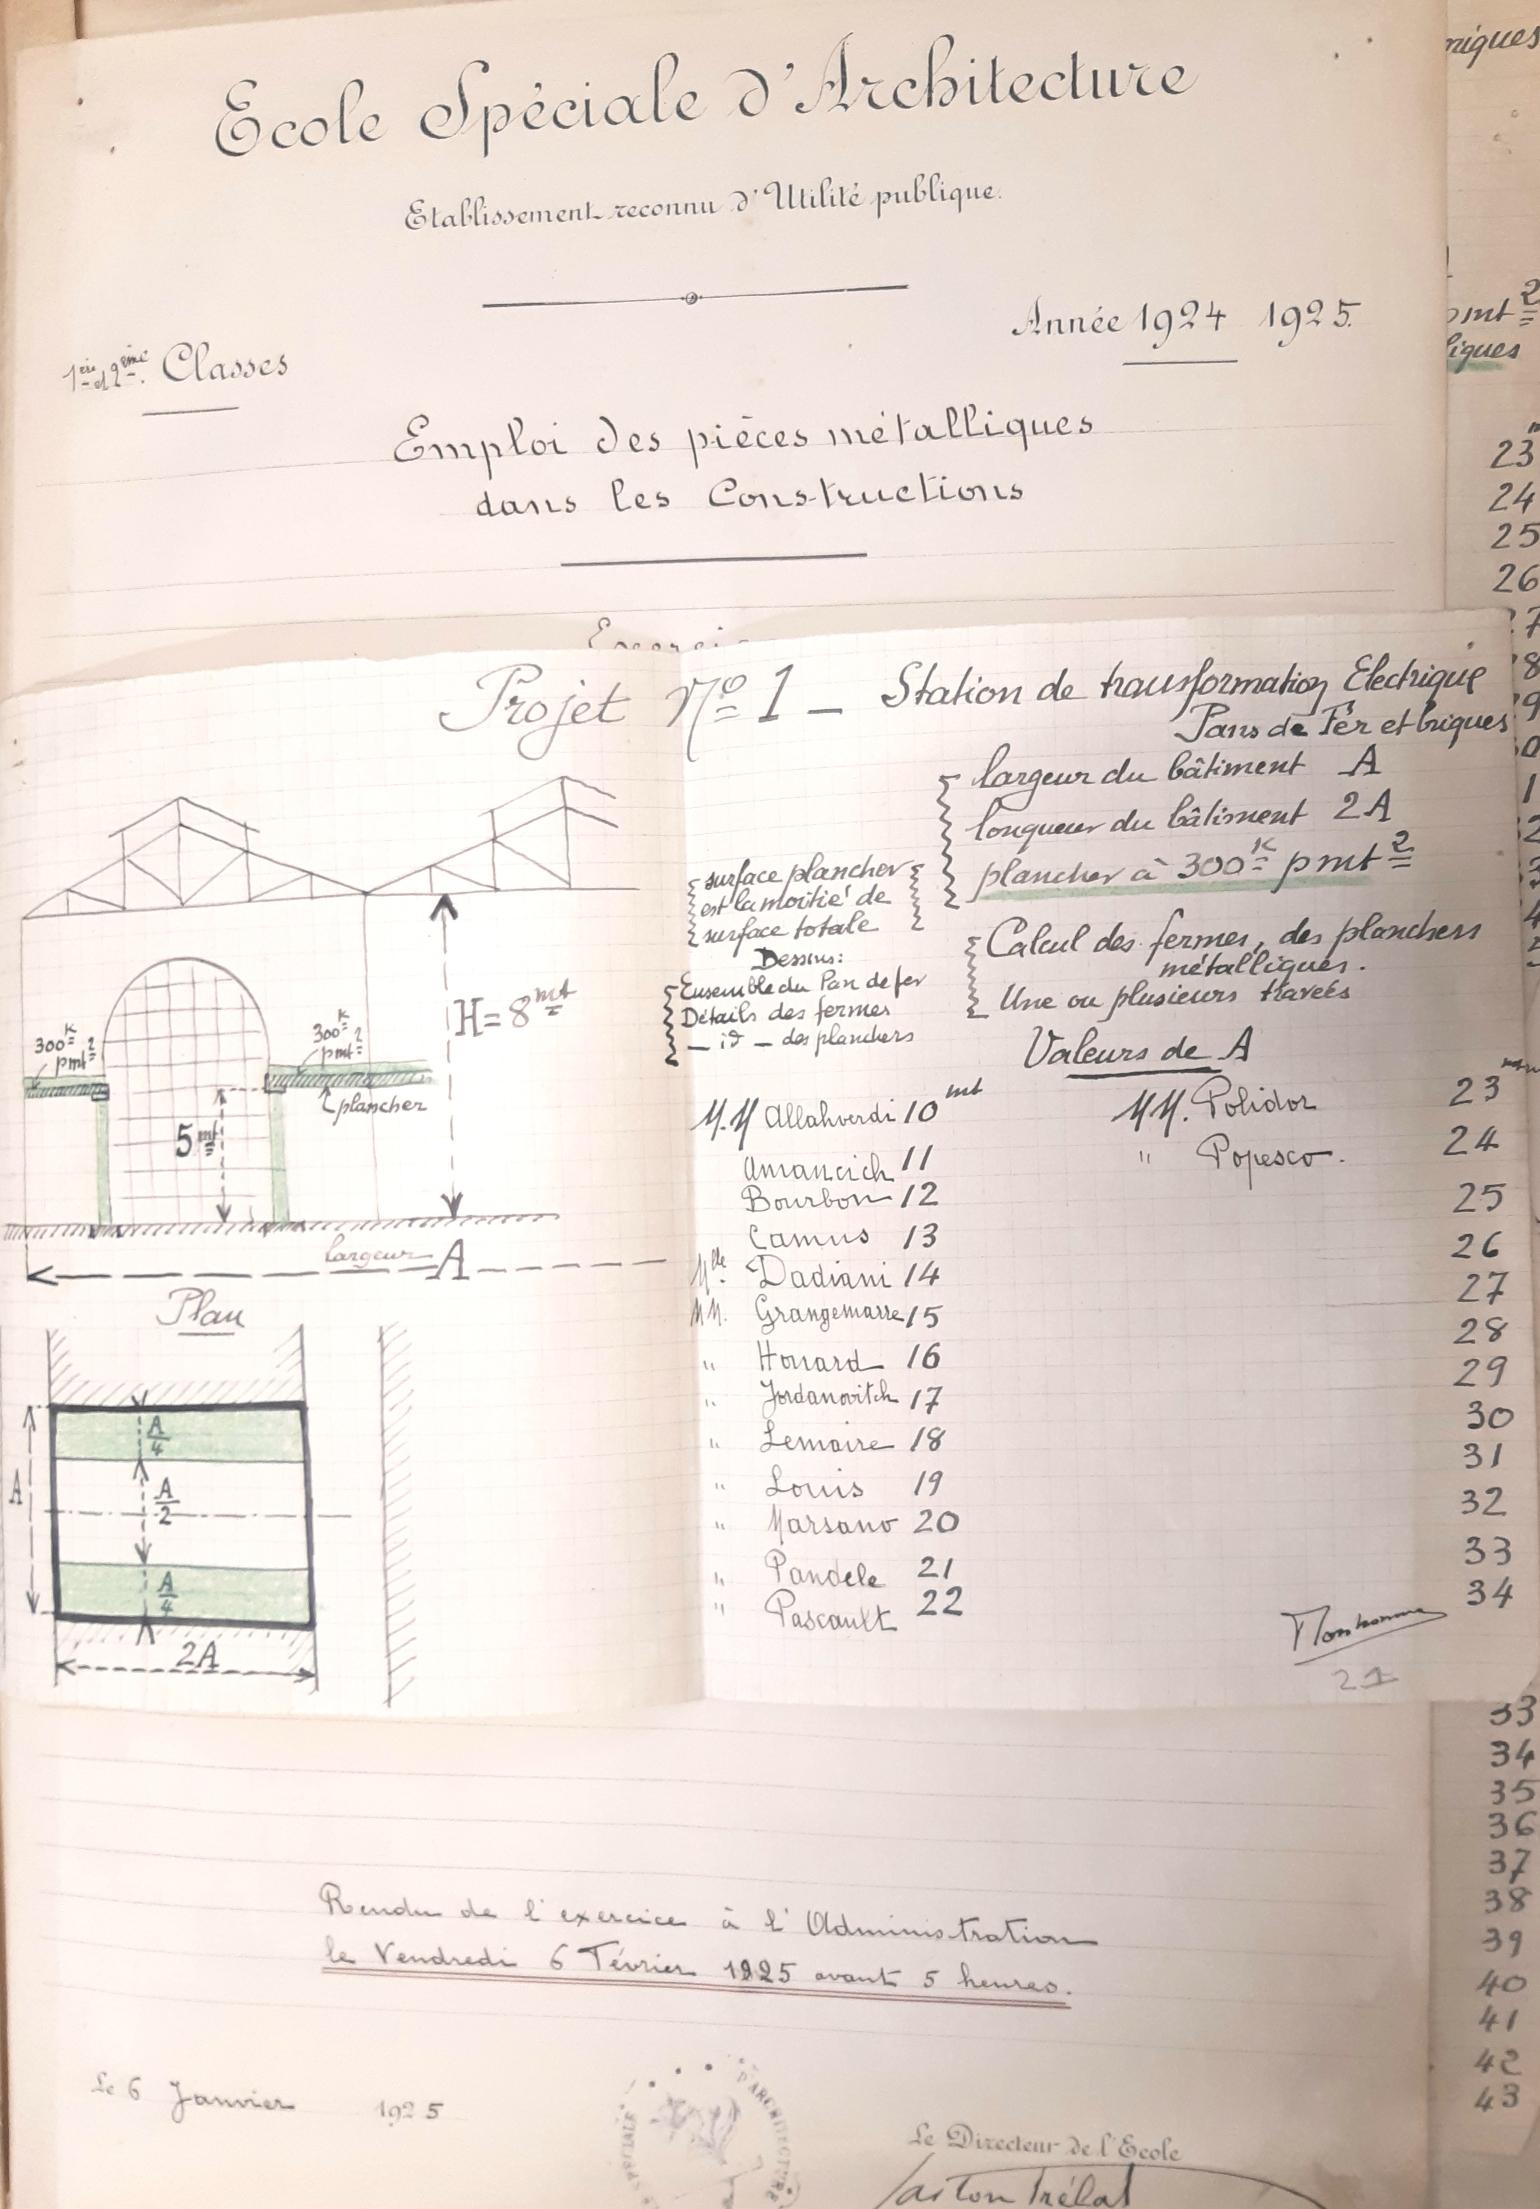 Ecole Spéciale d'Architecture
Etablissement reconnu d'Utilité publique.
Année 1924 1925.
1ère et 2ème. Classes
Emploi des pièces métalliques
dans les Constructions
Projet No 1 — Station de transformation Electrique
Pans de Fer et briques
largeur du bâtiment A
longueur du bâtiment 2A
plancher à 300K pmt2
surface plancher
est la moitié de
surface totale
Dessins:
Ensemble du Pan de fer
Détails des fermes
— id — des planchers
Calcul des fermes, des planchers
métalliques.
Une ou plusieurs travées
H = 8mt
300K
pmt2
300K
pmt2
plancher
5mt
largeur A
Plan
A
A/4
A/2
A/4
2A
Valeurs de A
M.M Allahverdi 10mt
Amancich 11
Bourbon 12
Camus 13
Mlle Dadiani 14
MM. Grangemarre 15
" Honard 16
" Jordanovitch 17
" Lemaire 18
" Louis 19
" Marsano 20
" Pandele 21
" Pascault 22
MM. Polidor 23
" Popesco. 24
25
26
27
28
29
30
31
32
33
34
21
Rendu de l'exercice à l'Administration
le Vendredi 6 Février 1925 avant 5 heures.
Le 6 Janvier 1925
Le Directeur de l'Ecole
Gaston Trélat
SPECIALE D'ARCHITECTURE
niques
pmt2
liques
23
24
25
26
33
34
35
36
37
38
39
40
41
42
43